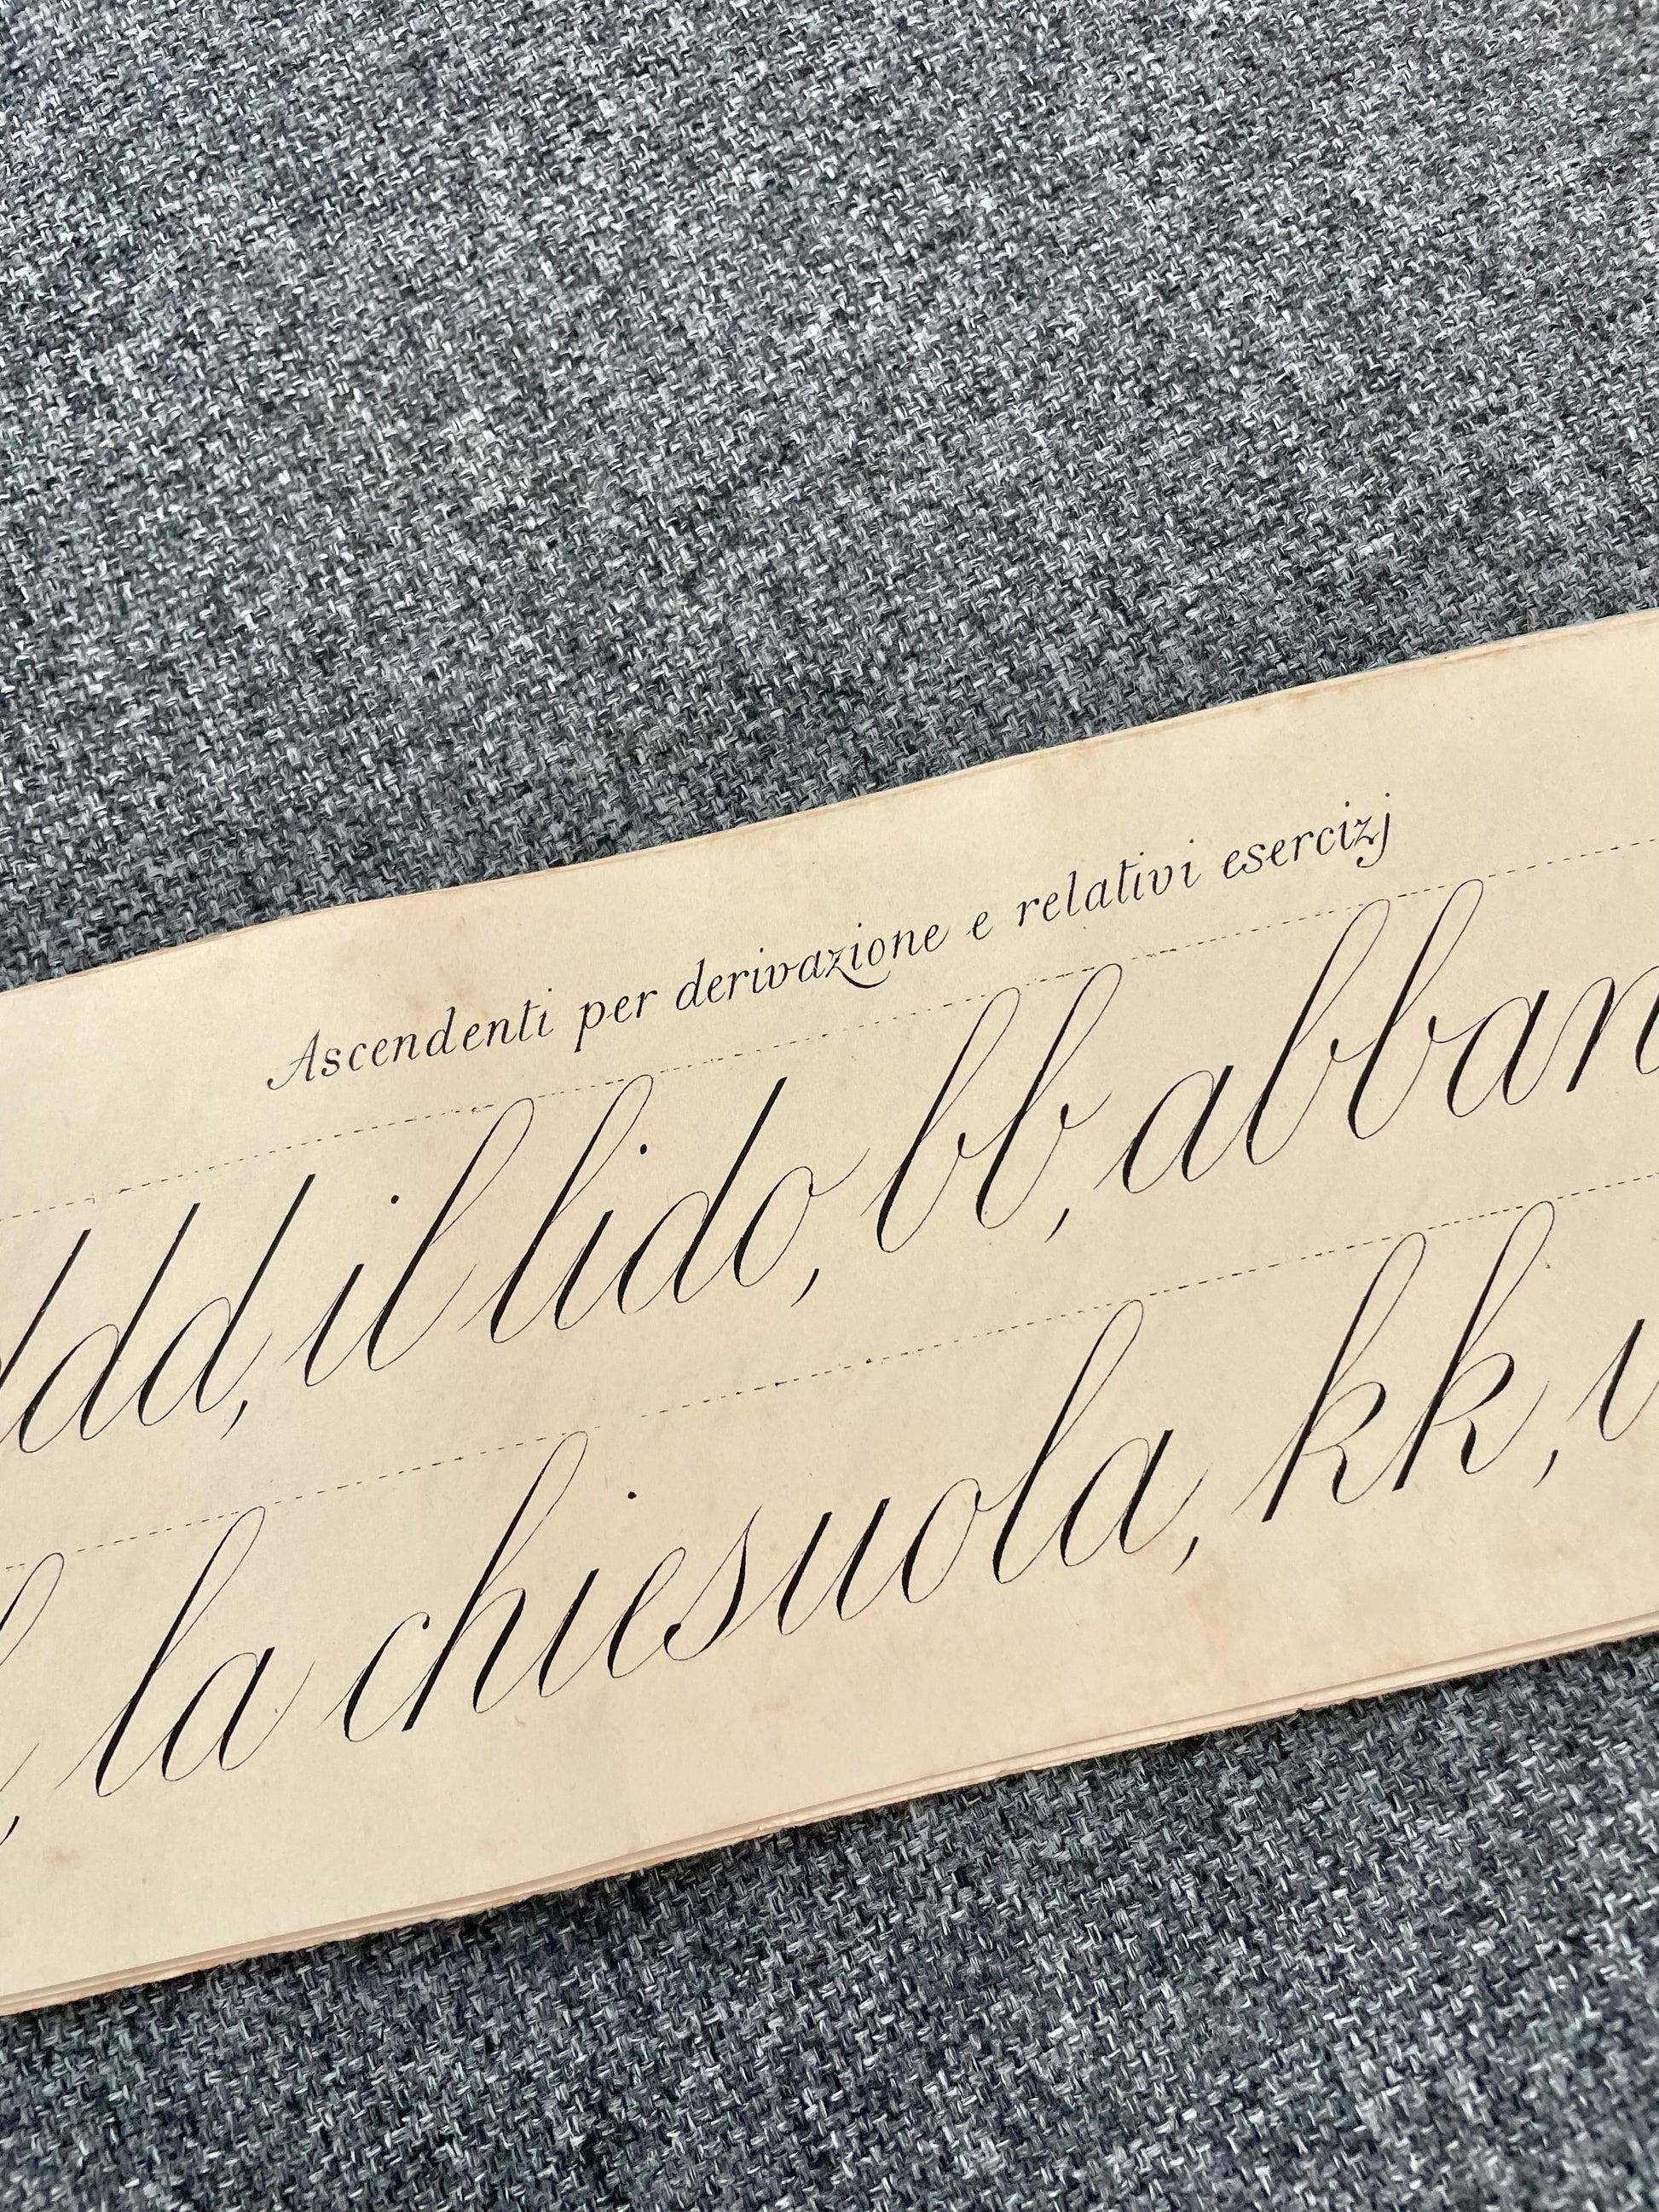 Ascendenti per derivazione e relativi esercizj
ddd, il lido, bb, abban
la chiesuola, kk,